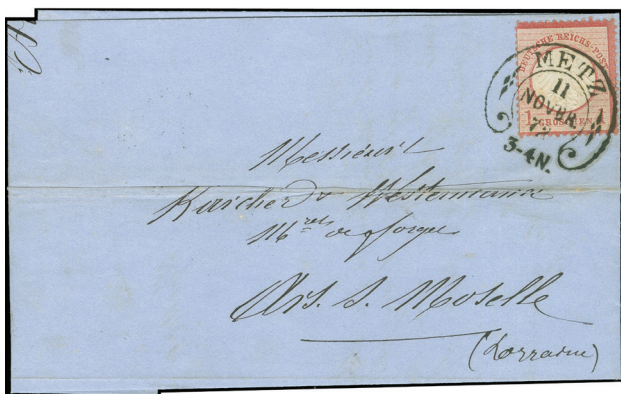 DEUTSCHE REICHS-POST
1 GROSCHEN 1
METZ
11
NOVBR
72
3-4N.
Messieurs
Karcher & Westermann
Mtres de forges
Ars. s. Moselle
(Lorraine)